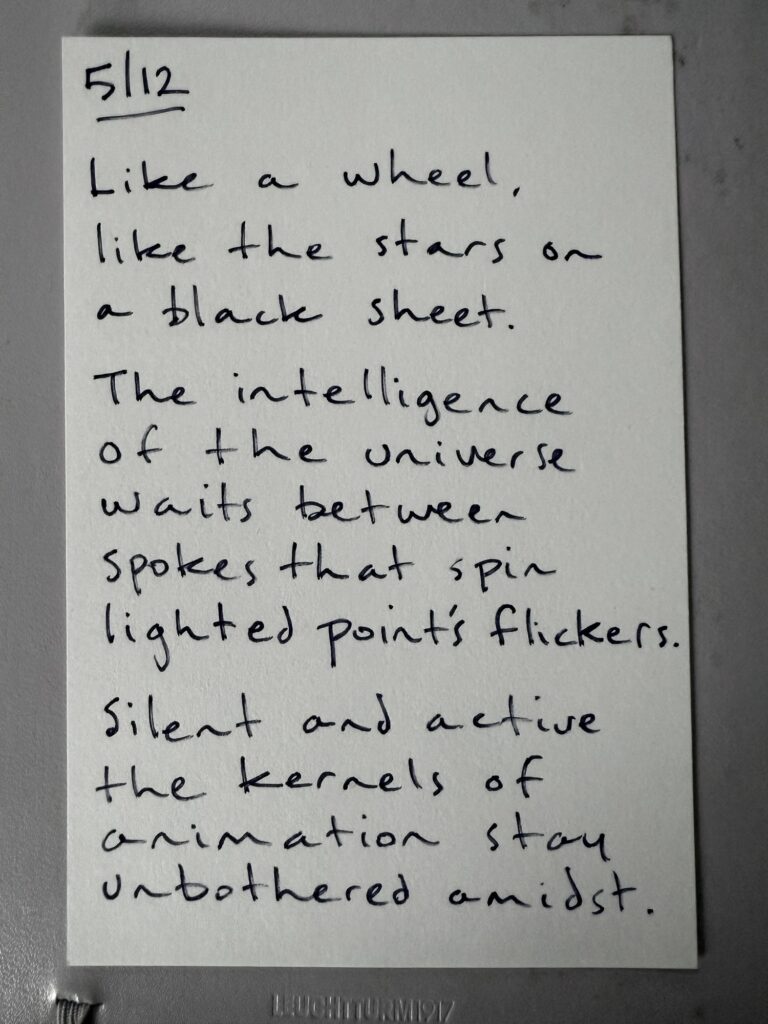 5/12
Like a wheel,
like the stars on
a black sheet.
The intelligence
of the universe
waits between
spokes that spin
lighted point's flickers.
Silent and active
the kernels of
animation stay
unbothered amidst.
LEUCHTTURM1917